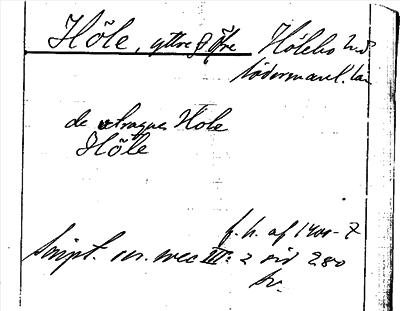 Hõle, yttre o Õfre Hölebo hd
Södermanl. län
de utraque Hole
Hõle
f. h. af 1400-t
Script. rer. svec III: 2 sid 280